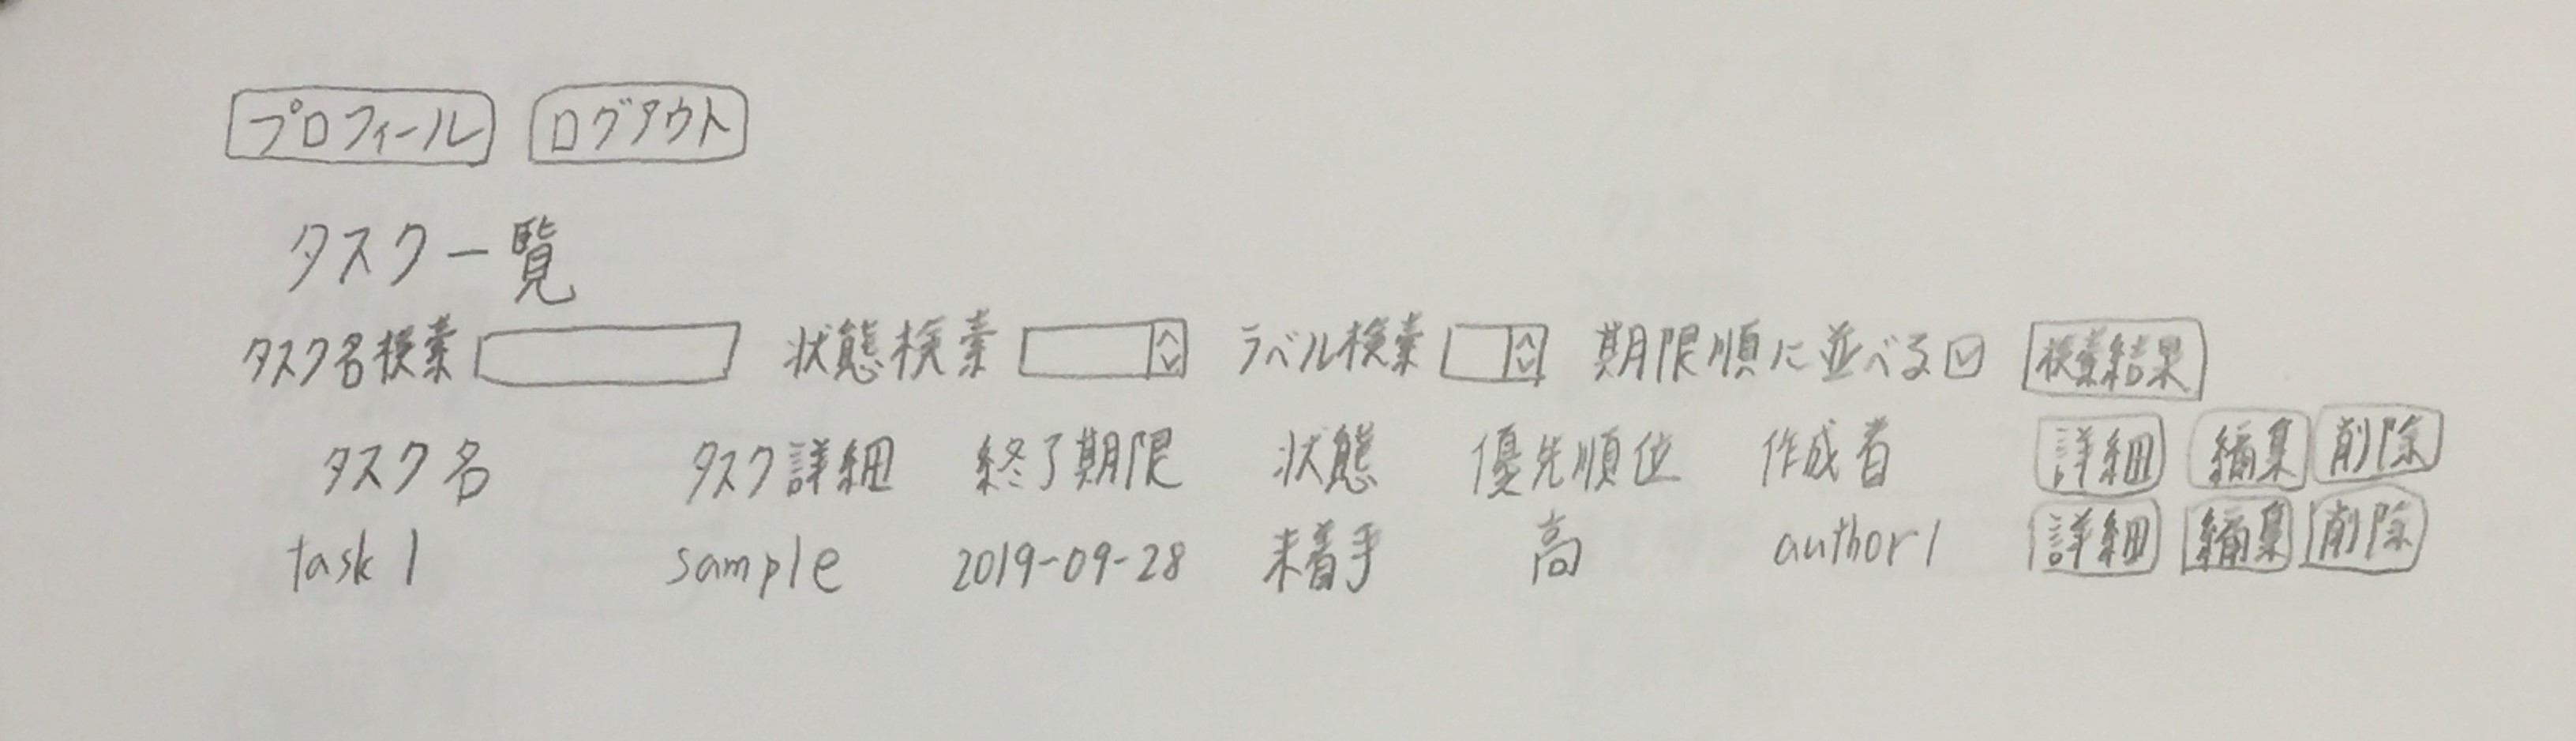 プロフィール ログアウト
タスク一覧
タスク名検索 状態検索 ラベル検索 期限順に並べる 検索結果
タスク名 タスク詳細 終了期限 状態 優先順位 作成者 詳細 編集 削除
task1 sample 2019-09-28 未着手 高 author1 詳細 編集 削除